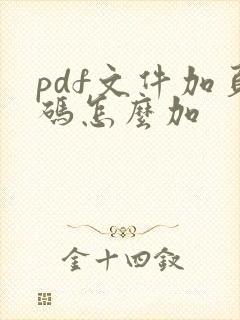 pdf文件加頁
碼怎麼加
金十四釵